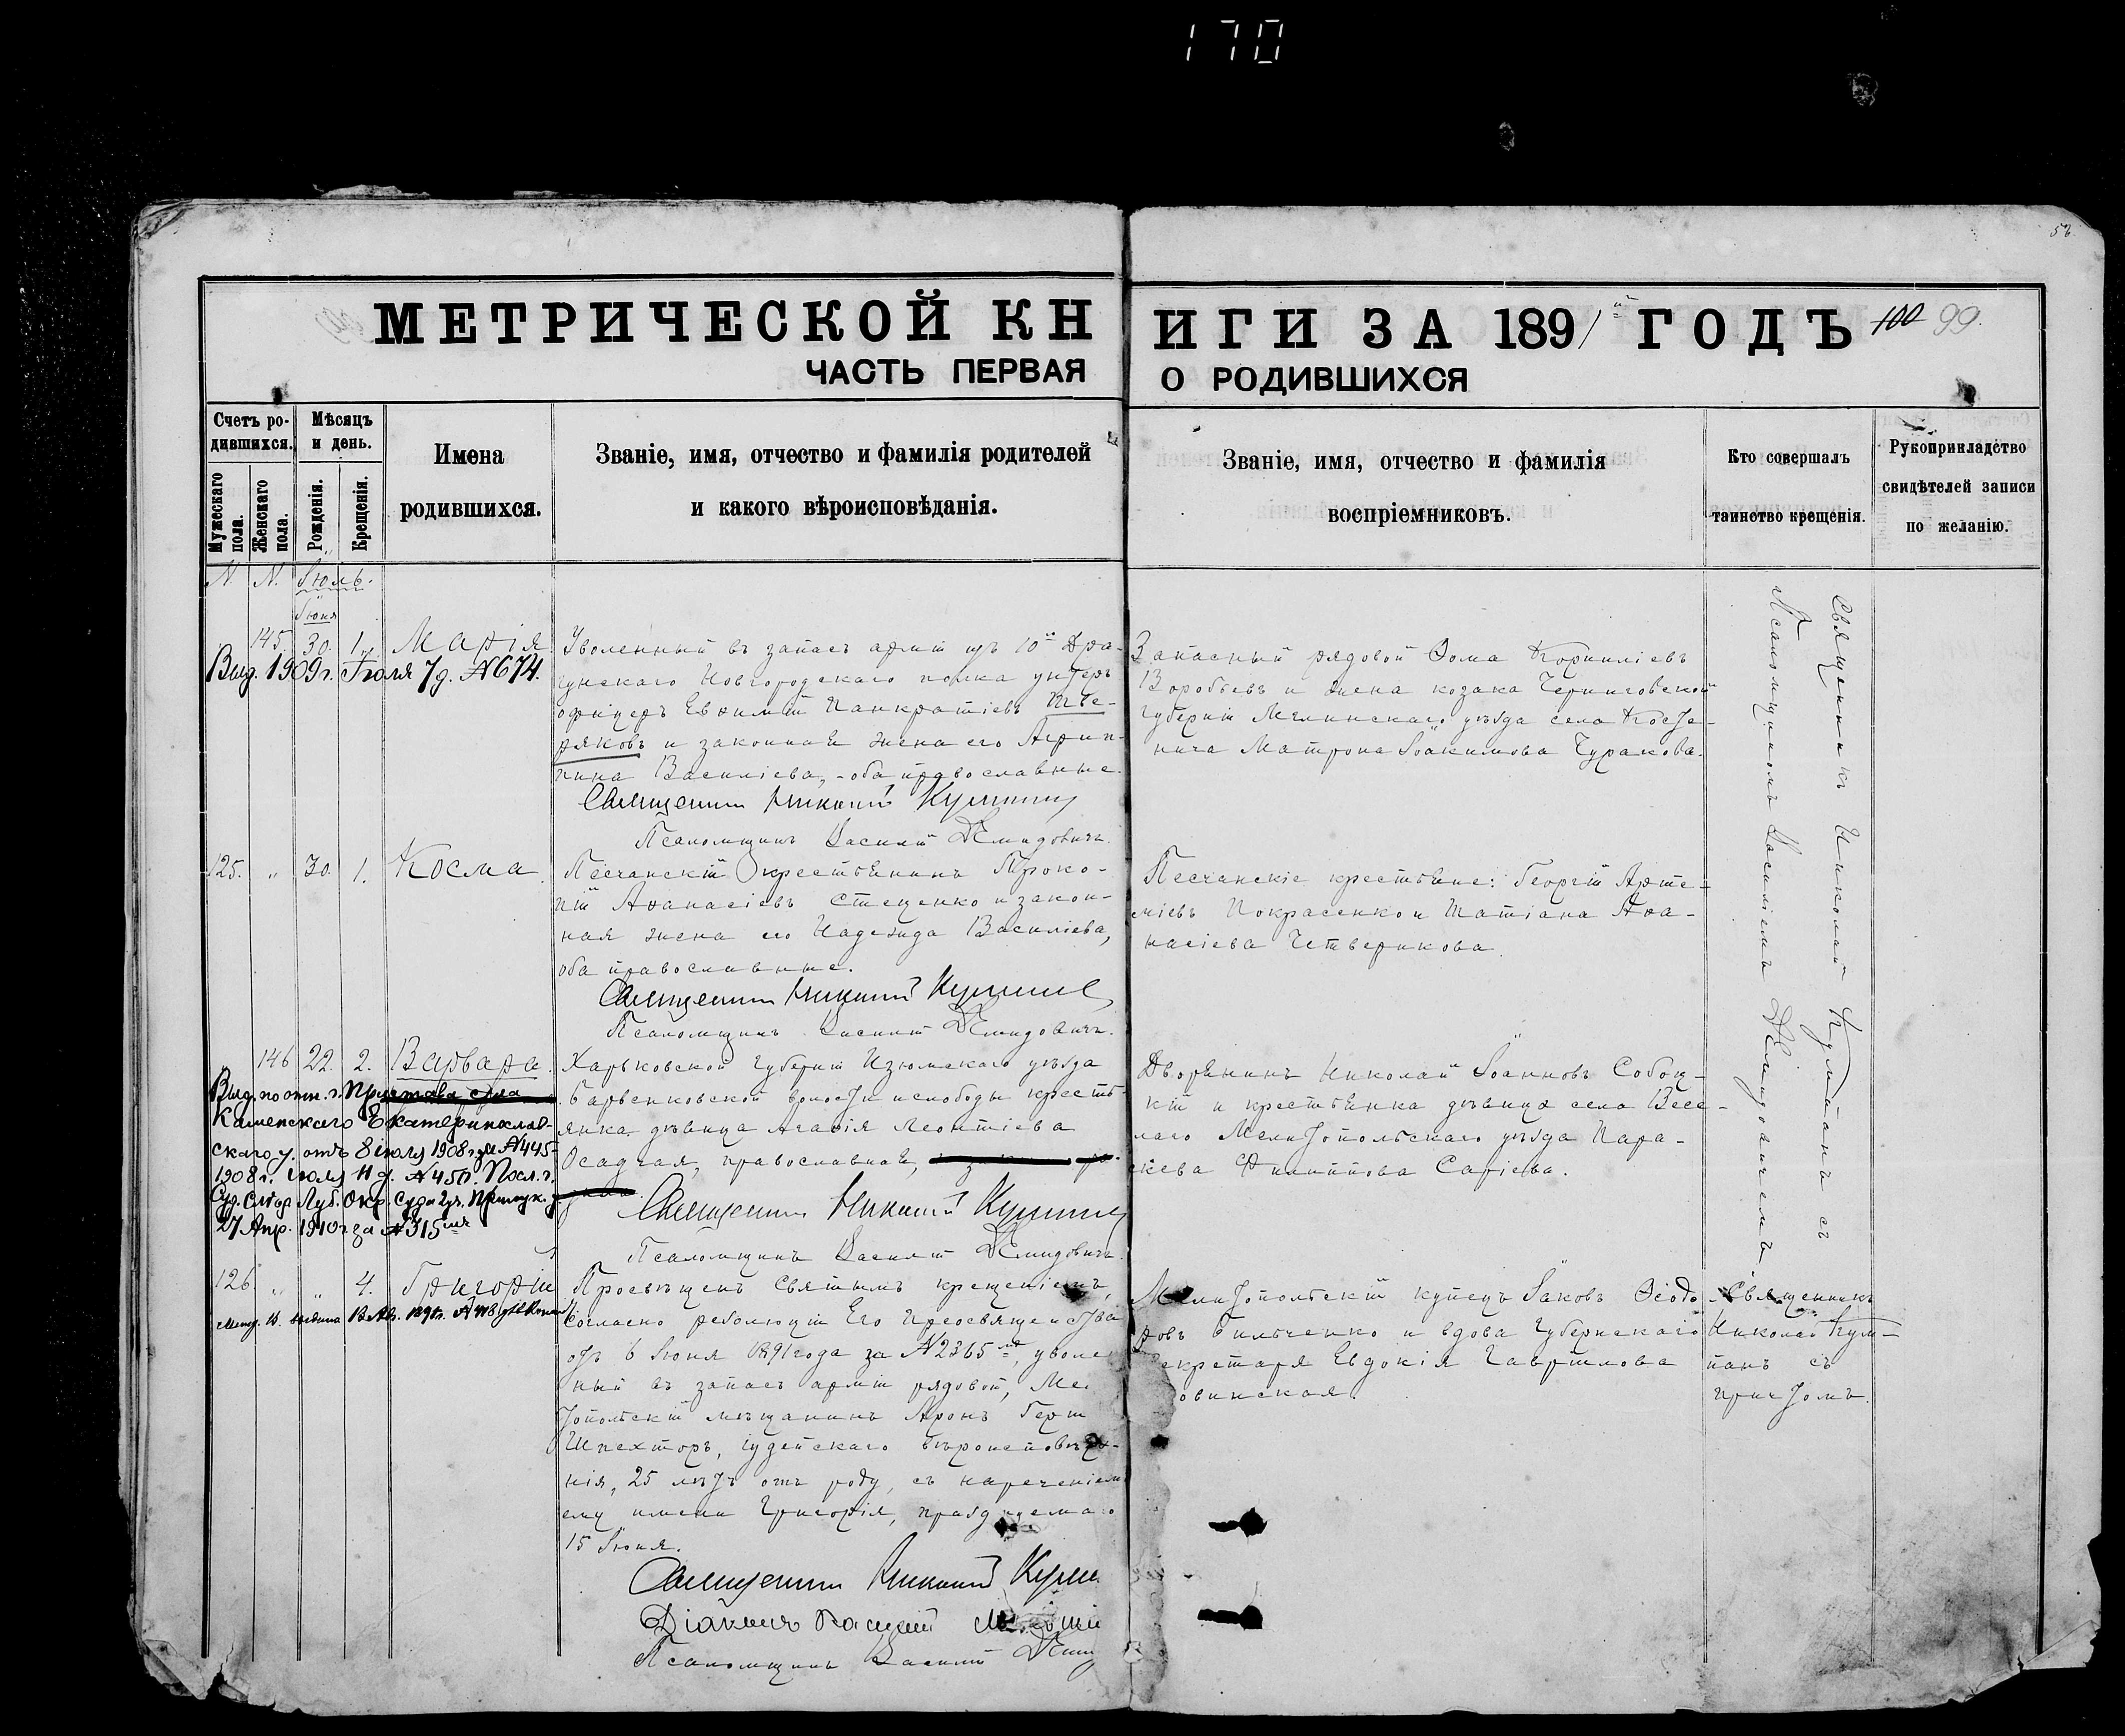 170
52
МЕТРИЧЕСКОЙ КНИГИ ЗА 1891й ГОДЪ 100 99.
ЧАСТЬ ПЕРВАЯ О РОДИВШИХСЯ
Счетъ ро-
дившихся.
Мужескаго пола.
Женскаго пола.
Мѣсяцъ
и день.
Рожденія.
Крещенія.
Имена
родившихся.
Званіе, имя, отчество и фамилія родителей
и какого вѣроисповѣданія.
Званіе, имя, отчество и фамилія
воспріемниковъ.
Кто совершалъ
таинство крещенія.
Рукоприкладство
свидѣтелей записи
по желанію.
N N. Іюль.
Іюня
145. 30. 1. Марія
Выд. 1909 г. Іюля 7 д. №674.
Уволенный въ запасъ арміи изъ 10го Дра-
гунскаго Новгородскаго полка унтеръ
офицеръ Евѳимій Панкратіевъ Тве-
ряковъ и законная жена его Агрип-
пина Василіева, - оба православные.
Священникъ Николай
Псаломщикъ Василій Демидовичъ.
Запасный рядовой Ѳома Корниліевъ
Воробьевъ и жена козака Черниговской
губерніи Мглинскаго уѣзда села Косте-
нича Матрона Іоакимова Чуракова.
Священникъ Николай съ
Псаломщикомъ Василіемъ Демидовичемъ
125. „ 30. 1. Косма.
Песчанскій крестьянинъ Проко-
пій Аѳанасіевъ Стеценко и закон-
ная жена его Надежда Василіева,
оба православные.
Священникъ Николай
Псаломщикъ Василій Демидовичъ.
Песчанскіе крестьяне: Георгій Арте-
міевъ Покрасенко и Татіана Аѳа-
насіева Четверикова.
146 22. 2. Варвара.
Каменскаго Екатеринослав-
скаго у. отъ 8 іюля 1908 г. за №445
27 Апр. 1910 г. за №315
Харьковской губерніи Изюмскаго уѣзда
Барвенковской волости и слободы кресть-
янка дѣвица Агафія Леонтіева
Осадчая, православная,
Священникъ Николай
Псаломщикъ Василій Демидовичъ.
Дворянинъ Николай Іоанновъ Собоц-
кій и крестьянка дѣвица села Весе-
лаго Мелитопольскаго уѣзда Пара-
скева Филиппова Саріева.
126 „ „ 4. Григорій
Просвѣщенъ Святымъ крещеніемъ,
согласно резолюціи Его Преосвященства
отъ 6 Іюня 1891 года за №2365мъ, уволен
ный въ запасъ арміи рядовой, Ме
топольскій мѣщанинъ Аронъ Герш
Шпехторъ, іудейскаго вѣроисповѣда-
нія, 25 лѣтъ отъ роду, съ нареченіемъ
ему имени Григорія, празднуемаго
15 Іюня.
Священникъ Николай
Діаконъ Василій
Псаломщикъ Василій
Мелитопольскій купецъ Іаковъ Ѳеодо
ровъ Бильченко и вдова Губернскаго
Секретаря Евдокія Гавриллова
овинская.
Священникъ
Николай
съ
причтомъ.